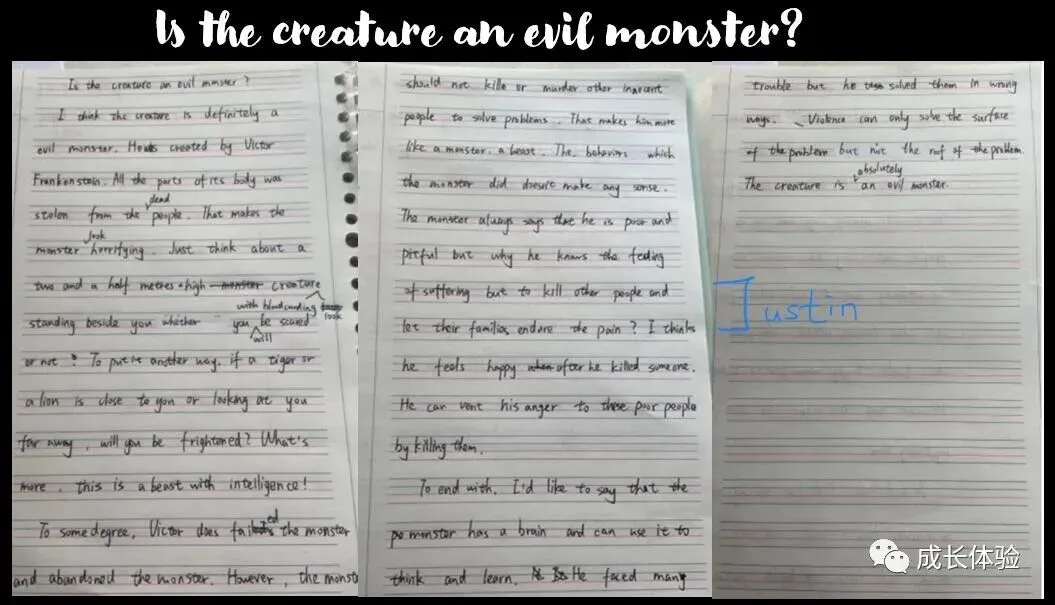 Is the creature an evil monster?
Is the creature an evil monster?
I think the creature is definitely a
evil monster. He was created by Victor
Frankenstein. All the parts of its body was
stolen from the dead people. That makes the
monster look horrifying. Just think about a
two and a half metres-high creature
with bloodcurding look
standing beside you whether you will be scared
or not? To put it another way, if a tiger or
a lion is close to you or looking at you
far away, will you be frightened? What's
more, this is a beast with intelligence!
To some degree, Victor does failed the monster
and abandoned the monster. However, the monst
should not kille or murder other innocent
people to solve problems. That makes him more
like a monster, a beast. The behaviors which
the monster did doesn't make any sense.
The monster always says that he is poor and
pitful but why he knows the feeling
of suffering but to kill other people and
let their families endure the pain? I thinks
he feels happy after he killed someone.
He can vent his anger to these poor people
by killing them.
To end with, I'd like to say that the
monster has a brain and can use it to
think and learn. He faced many
trouble but he solved them in wrong
ways. Violence can only solve the surface
of the problem but not the roof of the problem.
The creature is absolutely an evil monster.
Justin
成长体验